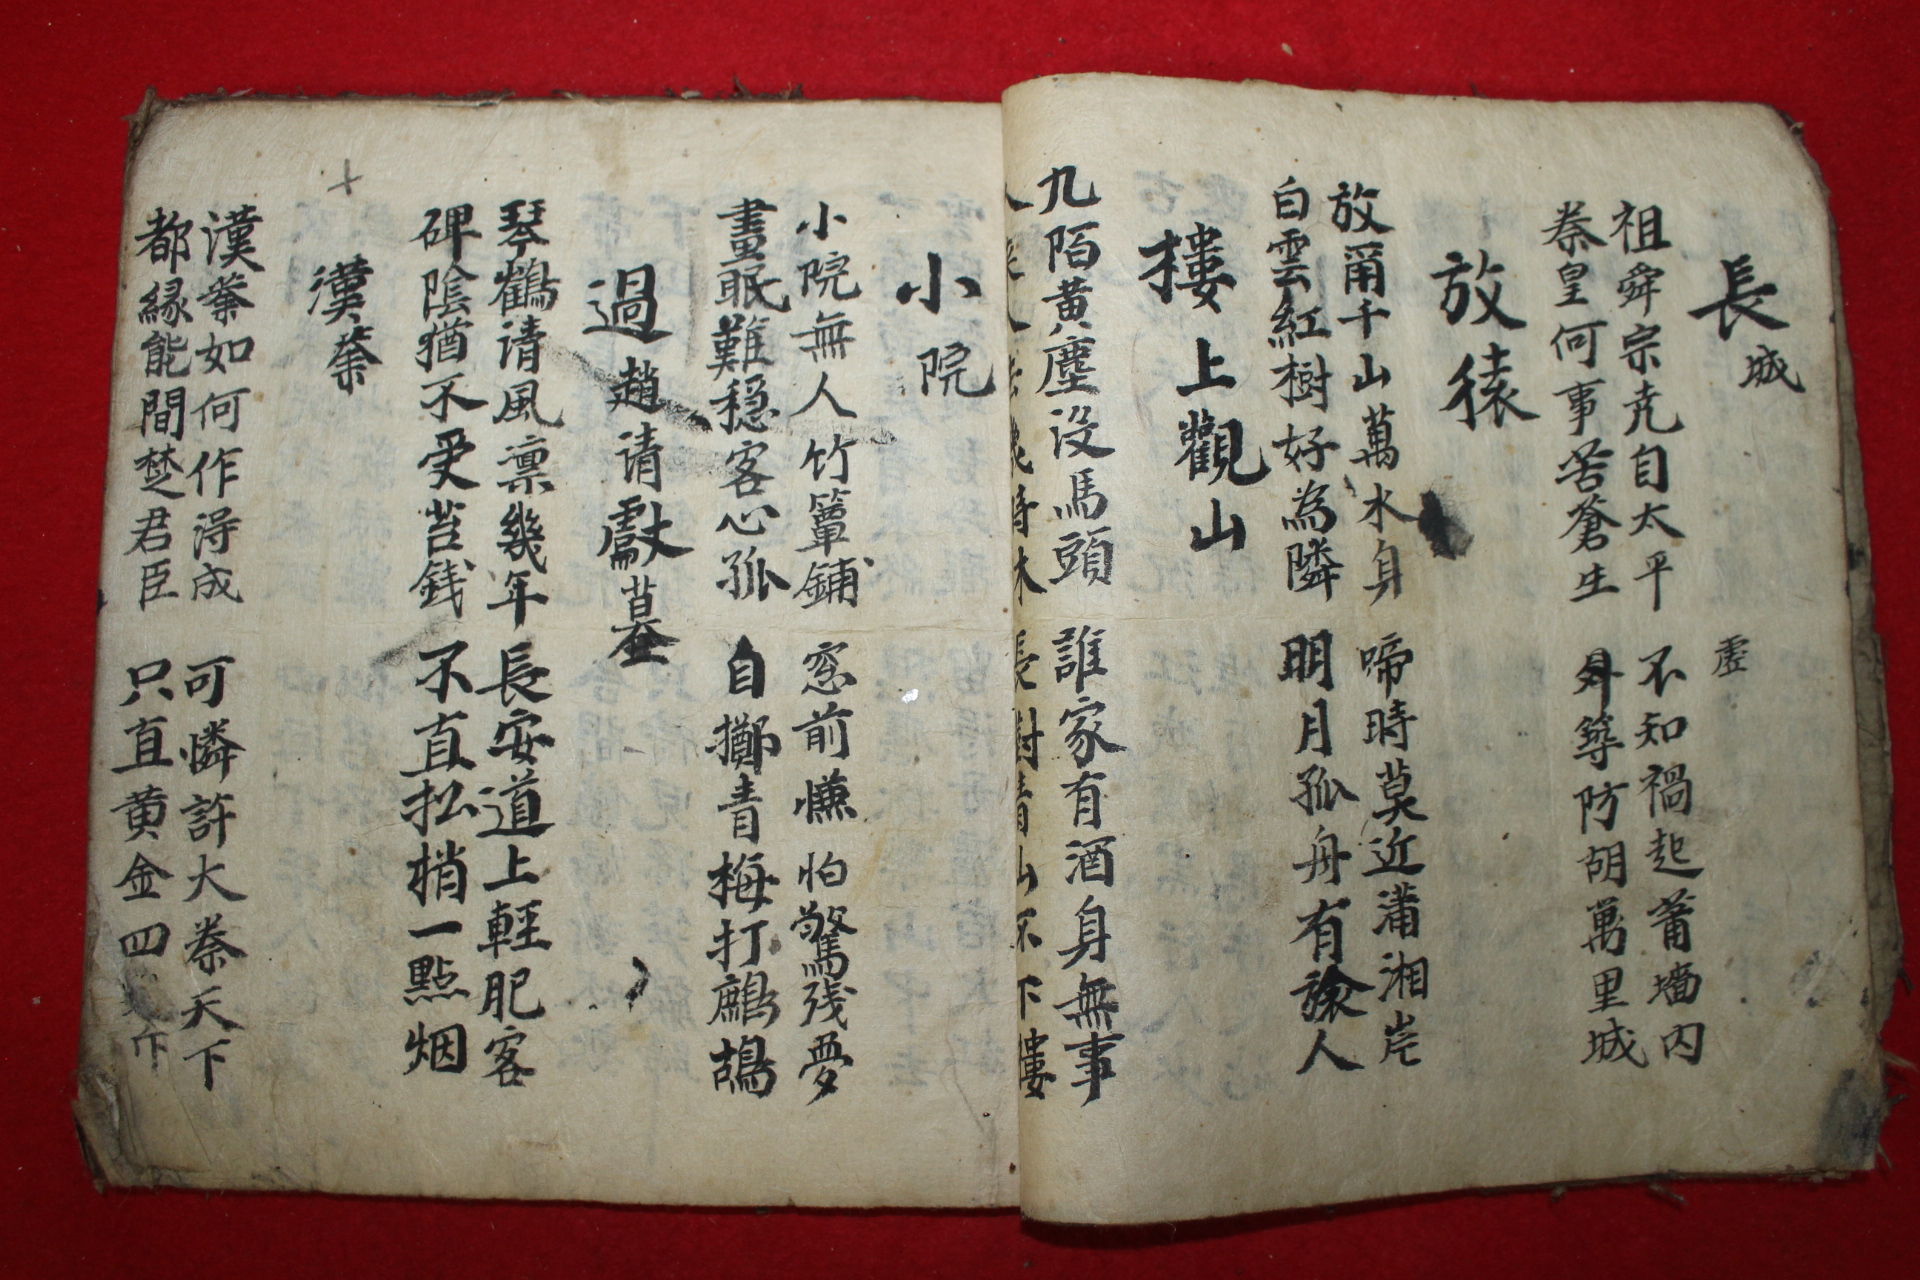 長城
祖舜宗尭自太平 不知禍起莆墻内
虚
秦皇何事苦蒼生 舛築防胡萬里城
放猿
放爾千山萬水身 啼時莫近瀟湘岸
白雲紅樹好為隣 明月孤舟有人
樓上觀山
九陌黄塵没馬頭 誰家有酒身無事
人 人 時休 長對青山不下樓
小院
小院無人竹簟鋪 窓前慊怕驚残夢
晝眠難穏客心孤 自擲青梅打鷓鴣
過趙請獻墓
琴鶴清風凛幾年 長安道上輕肥客
碑陰猶不受苔銭 不直松梢一點烟
漢
漢如何作得成 可憐許大秦天下
都縁能間楚君臣 只直黄金四